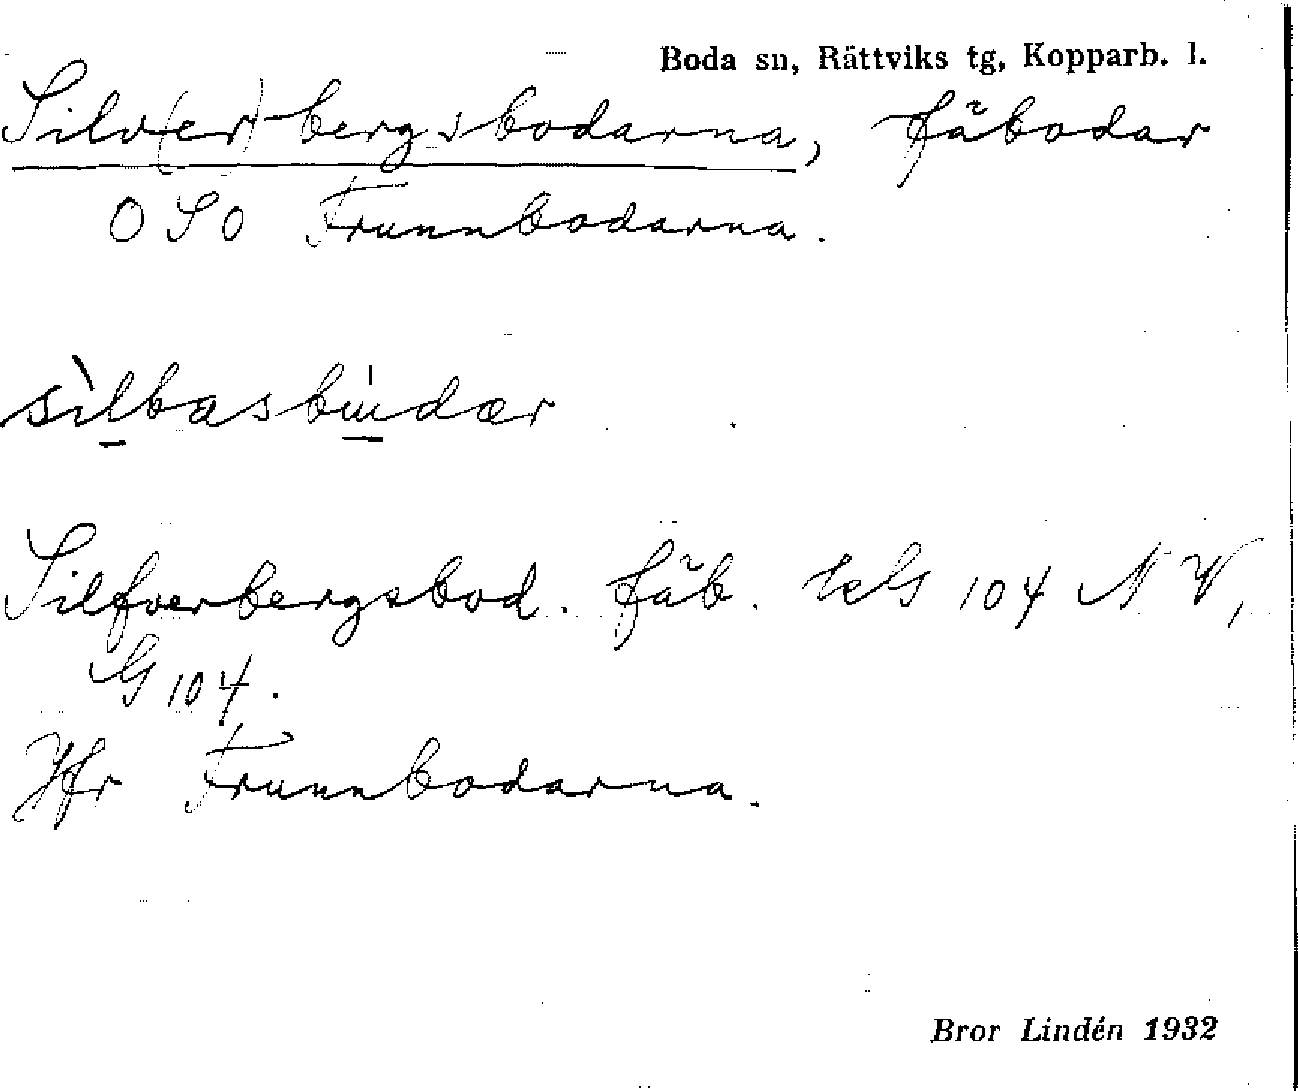 Boda sn, Rättviks tg, Kopparb. l.
Silv(er)bergsbodarna, fäbodar
OSO Frunnbodarna.
silbasbùdær
Silfverbergsbod. fäb. kG 104 NV,
G 104.
Jfr Frunnbodarna.
Bror Lindén 1932